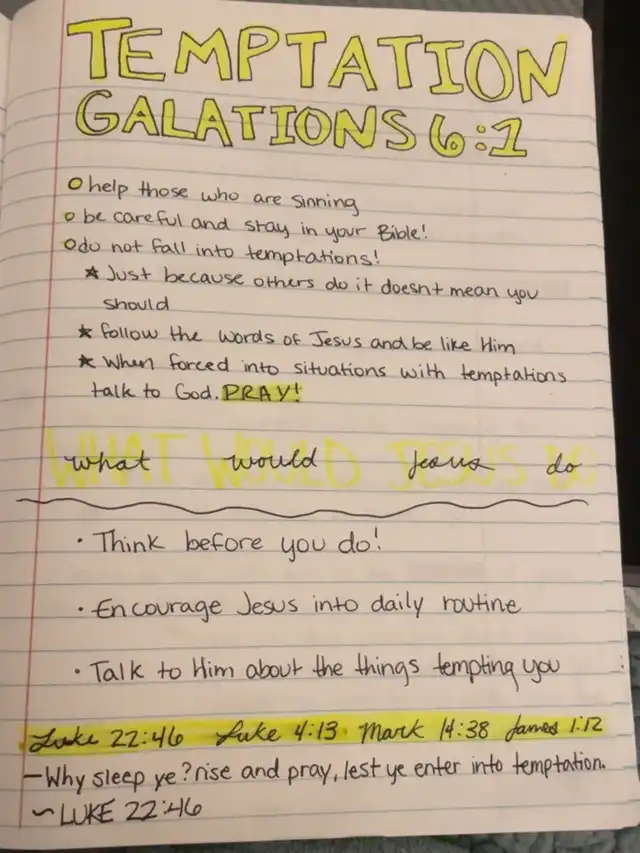 TEMPTATION
GALATIONS 6:1
help those who are sinning
be careful and stay in your Bible!
do not fall into temptations!
★ Just because others do it doesnt mean you
should
★ follow the words of Jesus and be like Him
★ When forced into situations with temptations
talk to God. PRAY!
WHAT WOULD JESUS DO
what would Jesus do
• Think before you do!
• Encourage Jesus into daily routine
• Talk to Him about the things tempting you
Luke 22:46 Luke 4:13 Mark 14:38 James 1:12
—Why sleep ye? rise and pray, lest ye enter into temptation.
~ LUKE 22:46